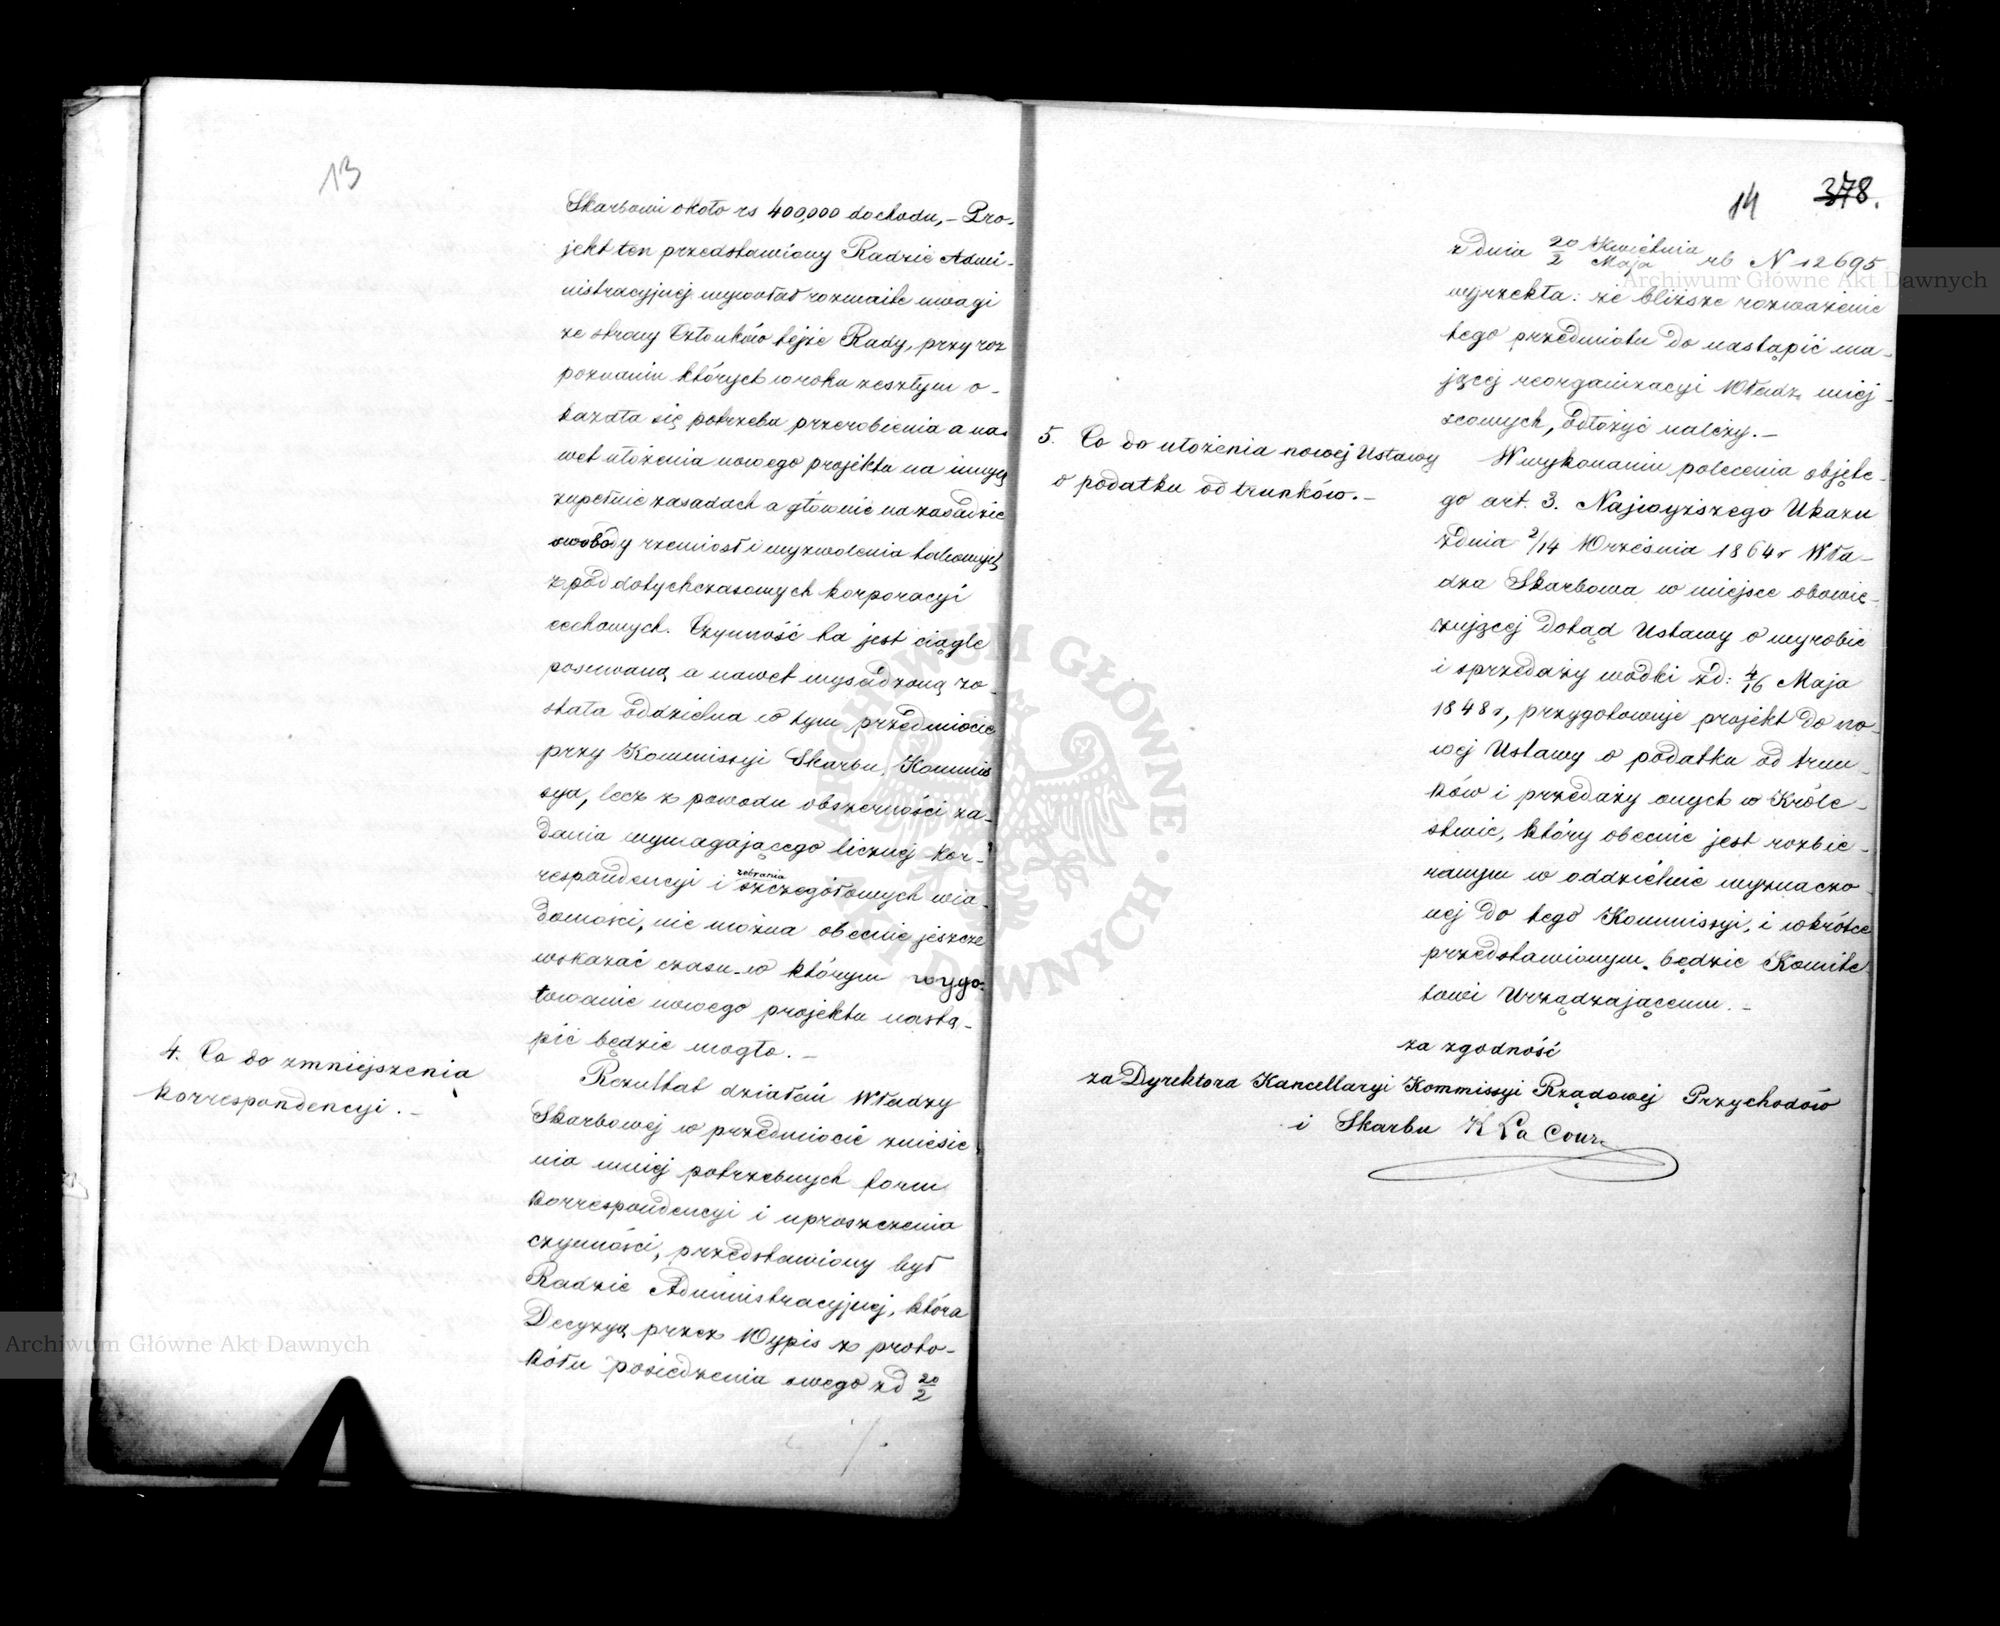 13
Skarbowi około rs 400,000 dochodu, – Pro-
jekt ten przedstawiony Radzie Admi-
nistracyjnej wywołał rozmaite uwagi
ze strony Członków tejże Rady, przy roz
poznaniu których w roku zeszłym o-
kazała się potrzeba przerobienia a na-
wet ułożenia nowego projektu na innych
zupełnie zasadach a głównie na zasadzie
swobody rzemiosł i wyzwolenia takowych
z pod dotychczasowych korporacyi
cechowych. Czynność ta jest ciągle
posuwaną a nawet wysadzoną zo-
stała oddzielna w tym przedmiocie
przy Kommissyi Skarbu, Kommis
sya, lecz z powodu obszerności za-
dania wymagającego licznej kor-
respondencyi i zebrania szczegółowych wia-
domości, nie można obecnie jeszcze
wskazać czasu w którym wygo-
towanie nowego projektu nastą-
pić będzie mogło. –
4. Co do zmniejszenia
korrespondencyi. –
Rezultat działań Władzy
Skarbowej w przedmiocie zniesie
nia mniej potrzebnych form
korrespondencyi i uproszczenia
czynności, przedstawiony był
Radzie Administracyjnej, która
Decyzyą przez Wypis z proto-
kółu posiedzenia swego zd 20/2
14 378.
z dnia 20/2 Kwietnia/Maja rb N 12695
wyrzekła: że bliższe rozważenie
tego przedmiotu do nastąpić ma-
jącej reorganizacyi Władz miej-
scowych, odłożyć należy. –
5. Co do ułożenia nowej Ustawy
o podatku od trunków. –
W wykonaniu polecenia objęte-
go art. 3. Najwyższego Ukazu
z dnia 2/14 Września 1864 r Wła-
dza Skarbowa w miejsce obowią-
zującej dotąd Ustawy o wyrobie
i sprzedaży wódki zd: 4/16 Maja
1848 r, przygotowuje projekt do no-
wej Ustawy o podatku od trun-
ków i przedaży onych w Króle-
stwie, który obecnie jest rozbie-
ranym w oddzielnie wyznaczo-
nej do tego Kommissyi, i wkrótce
przedstawionym będzie Komite
towi Urządzającemu. –
za zgodność
za Dyrektora Kancellaryi Kommissyi Rządowej Przychodów
i Skarbu K La Cour
Archiwum Główne Akt Dawnych
Archiwum Główne Akt Dawnych
ARCHIWUM GŁÓWNE AKT DAWNYCH